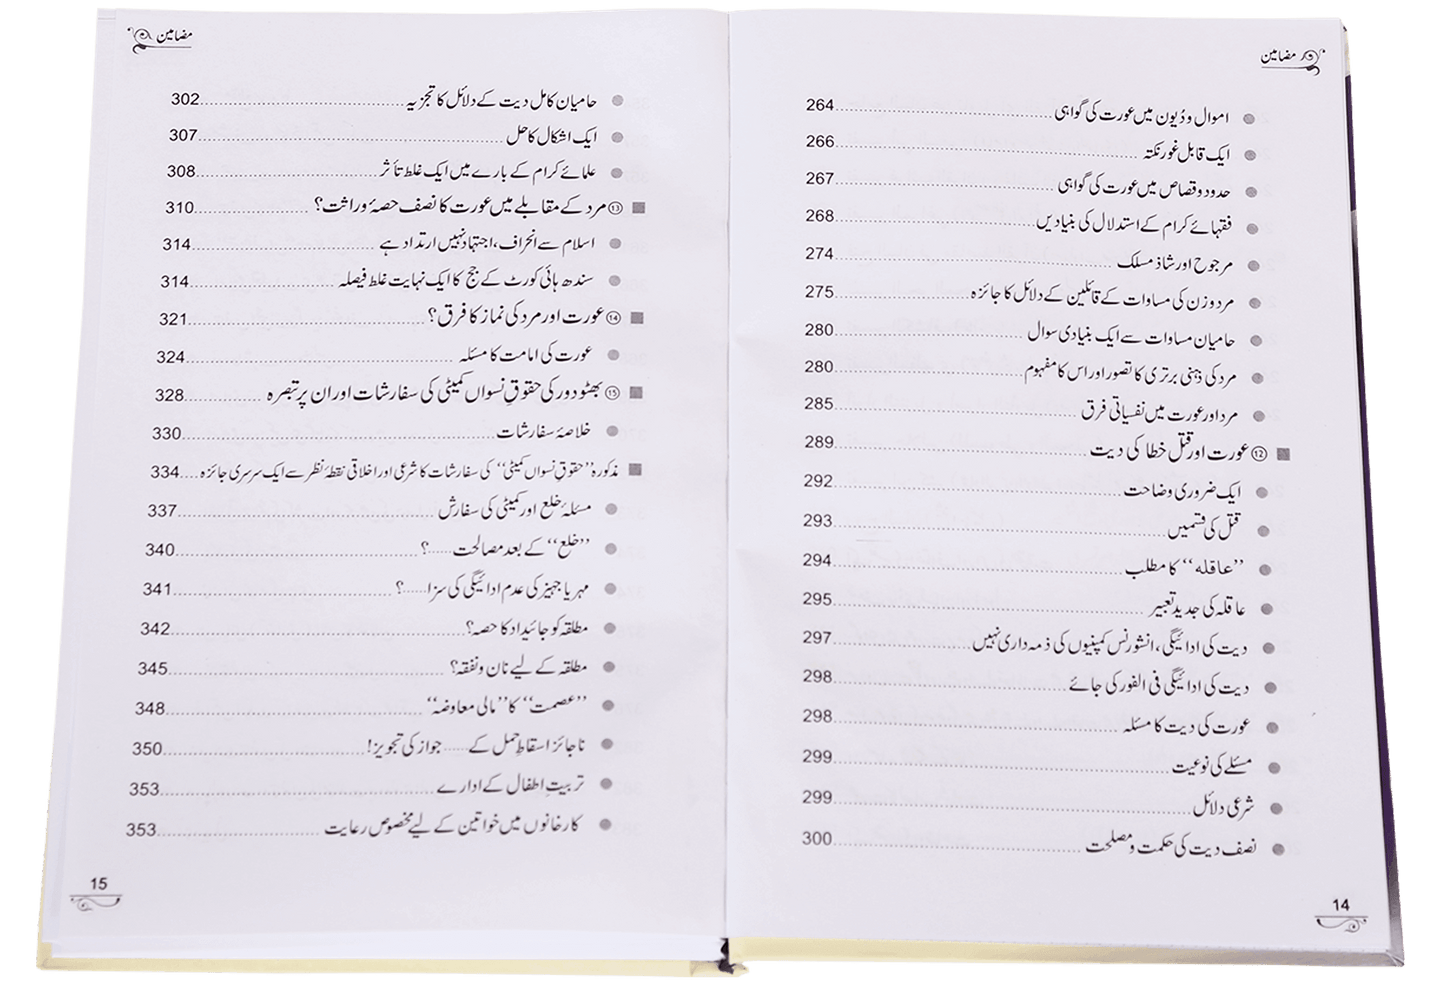 مضامین
اموال و دُیون میں عورت کی گواہی 264
ایک قابل غور نکتہ 266
حدود و قصاص میں عورت کی گواہی 267
فقہائے کرام کے استدلال کی بنیادیں 268
مرجوح اور شاذ مسلک 274
مرد و زن کی مساوات کے قائلین کے دلائل کا جائزہ 275
حامیان مساوات سے ایک بنیادی سوال 280
مرد کی ذہنی برتری کا تصور اور اس کا مفہوم 280
مرد اور عورت میں نفسیاتی فرق 285
⑫ عورت اور قتل خطا کی دیت 289
ایک ضروری وضاحت 292
قتل کی قسمیں 293
’’عاقلہ‘‘ کا مطلب 294
عاقلہ کی جدید تعبیر 295
دیت کی ادائیگی، انشورنس کمپنیوں کی ذمہ داری نہیں 297
دیت کی ادائیگی فی الفور کی جائے 298
عورت کی دیت کا مسئلہ 298
مسئلے کی نوعیت 299
شرعی دلائل 299
نصف دیت کی حکمت و مصلحت 300
14
مضامین
حامیان کامل دیت کے دلائل کا تجزیہ 302
ایک اشکال کا حل 307
علمائے کرام کے بارے میں ایک غلط تأثر 308
⑬ مرد کے مقابلے میں عورت کا نصف حصۂ وراثت؟ 310
اسلام سے انحراف، اجتہاد نہیں ارتداد ہے 314
سندھ ہائی کورٹ کے جج کا ایک نہایت غلط فیصلہ 314
⑭ عورت اور مرد کی نماز کا فرق؟ 321
عورت کی امامت کا مسئلہ 324
⑮ بھٹو دور کی حقوقِ نسواں کمیٹی کی سفارشات اور ان پر تبصرہ 328
خلاصۂ سفارشات 330
مذکورہ ’’حقوقِ نسواں کمیٹی‘‘ کی سفارشات کا شرعی اور اخلاقی نقطۂ نظر سے ایک سرسری جائزہ 334
مسئلۂ خلع اور کمیٹی کی سفارش 337
’’خلع‘‘ کے بعد مصالحت ......؟ 340
مہر یا جہیز کی عدم ادائیگی کی سزا......؟ 341
مطلقہ کو جائیداد کا حصہ؟ 342
مطلقہ کے لیے نان و نفقہ؟ 345
’’عصمت‘‘ کا ’’مالی معاوضہ‘‘ 348
ناجائز اسقاطِ حمل کے ...... جواز کی تجویز! 350
تربیتِ اطفال کے ادارے 353
کارخانوں میں خواتین کے لیے مخصوص رعایت 353
15